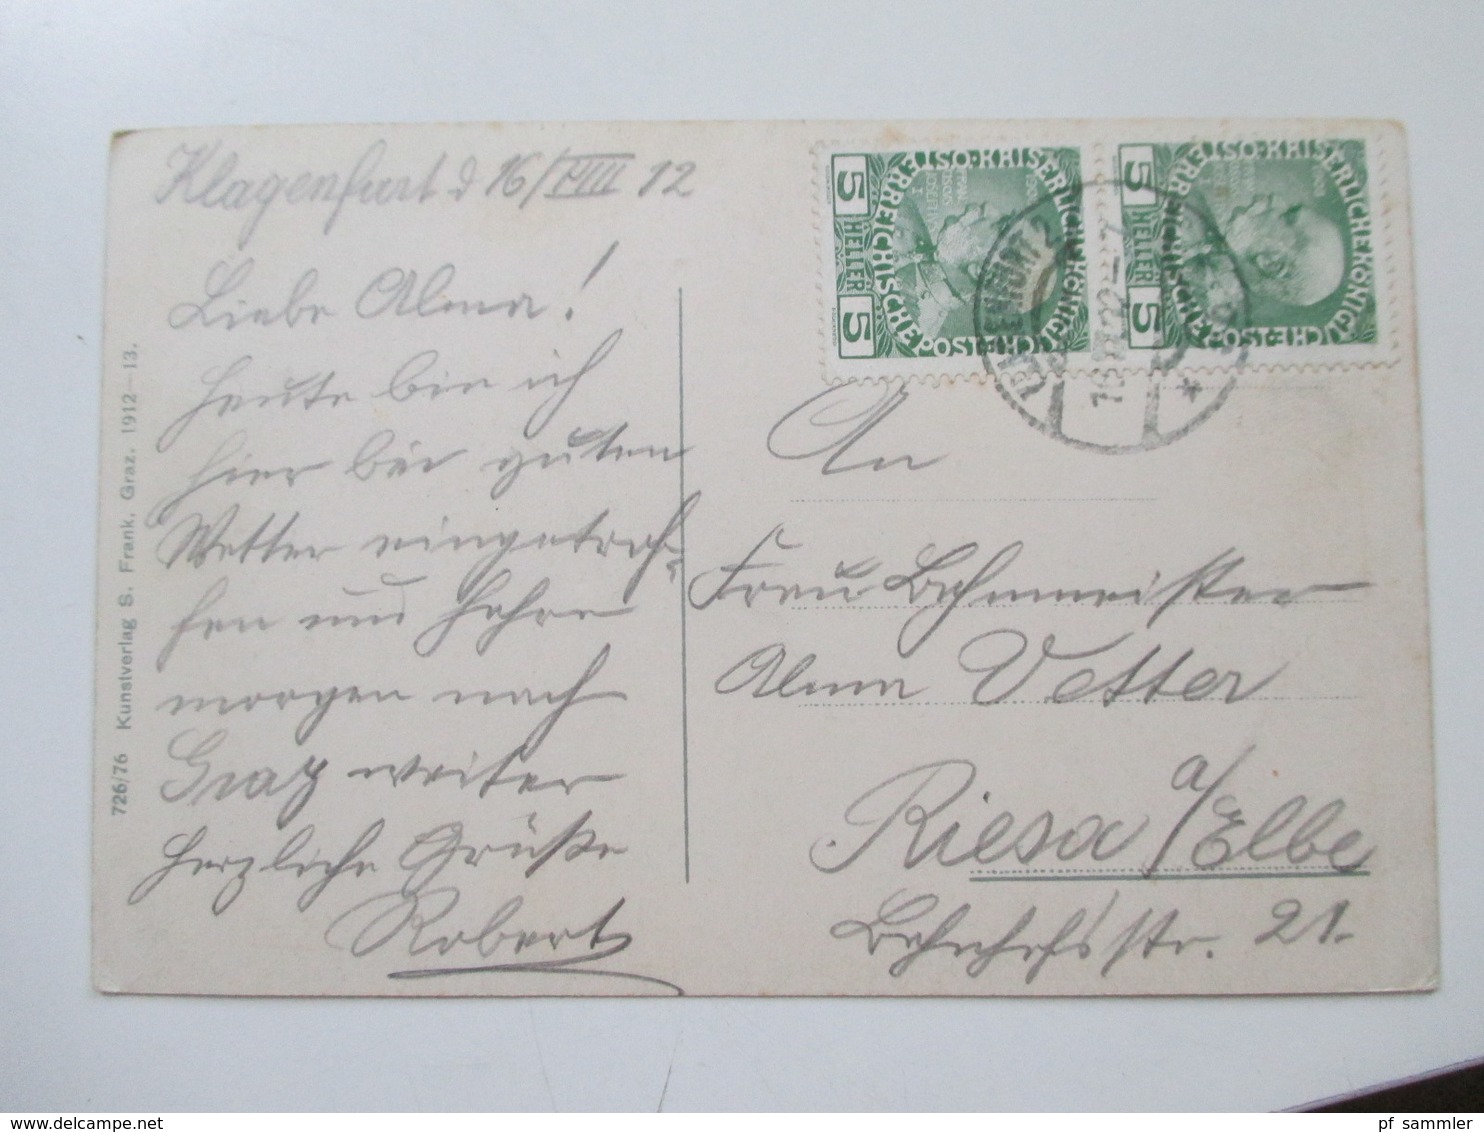 Klagenfurt d 16/VIII 12
Liebe Alma!
Heute bin ich
hier bei guten
Wetter eingetrof-
fen und fahre
morgen nach
Graz weiter
Herzliche Grüße
Robert
726/76 Kunstverlag S. Frank, Graz. 1912—13.
5 HELLER 5
KAISERLICHE KÖNIGLICHE ÖSTERREICHISCHE POST
5 HELLER 5
KAISERLICHE KÖNIGLICHE ÖSTERREICHISCHE POST
KLAGENFURT 2
An
Frau Bahnmeister
Alma Vetter
Riesa a/Elbe
Bahnhofsstr. 21.
delcampe.net
pf_sammler